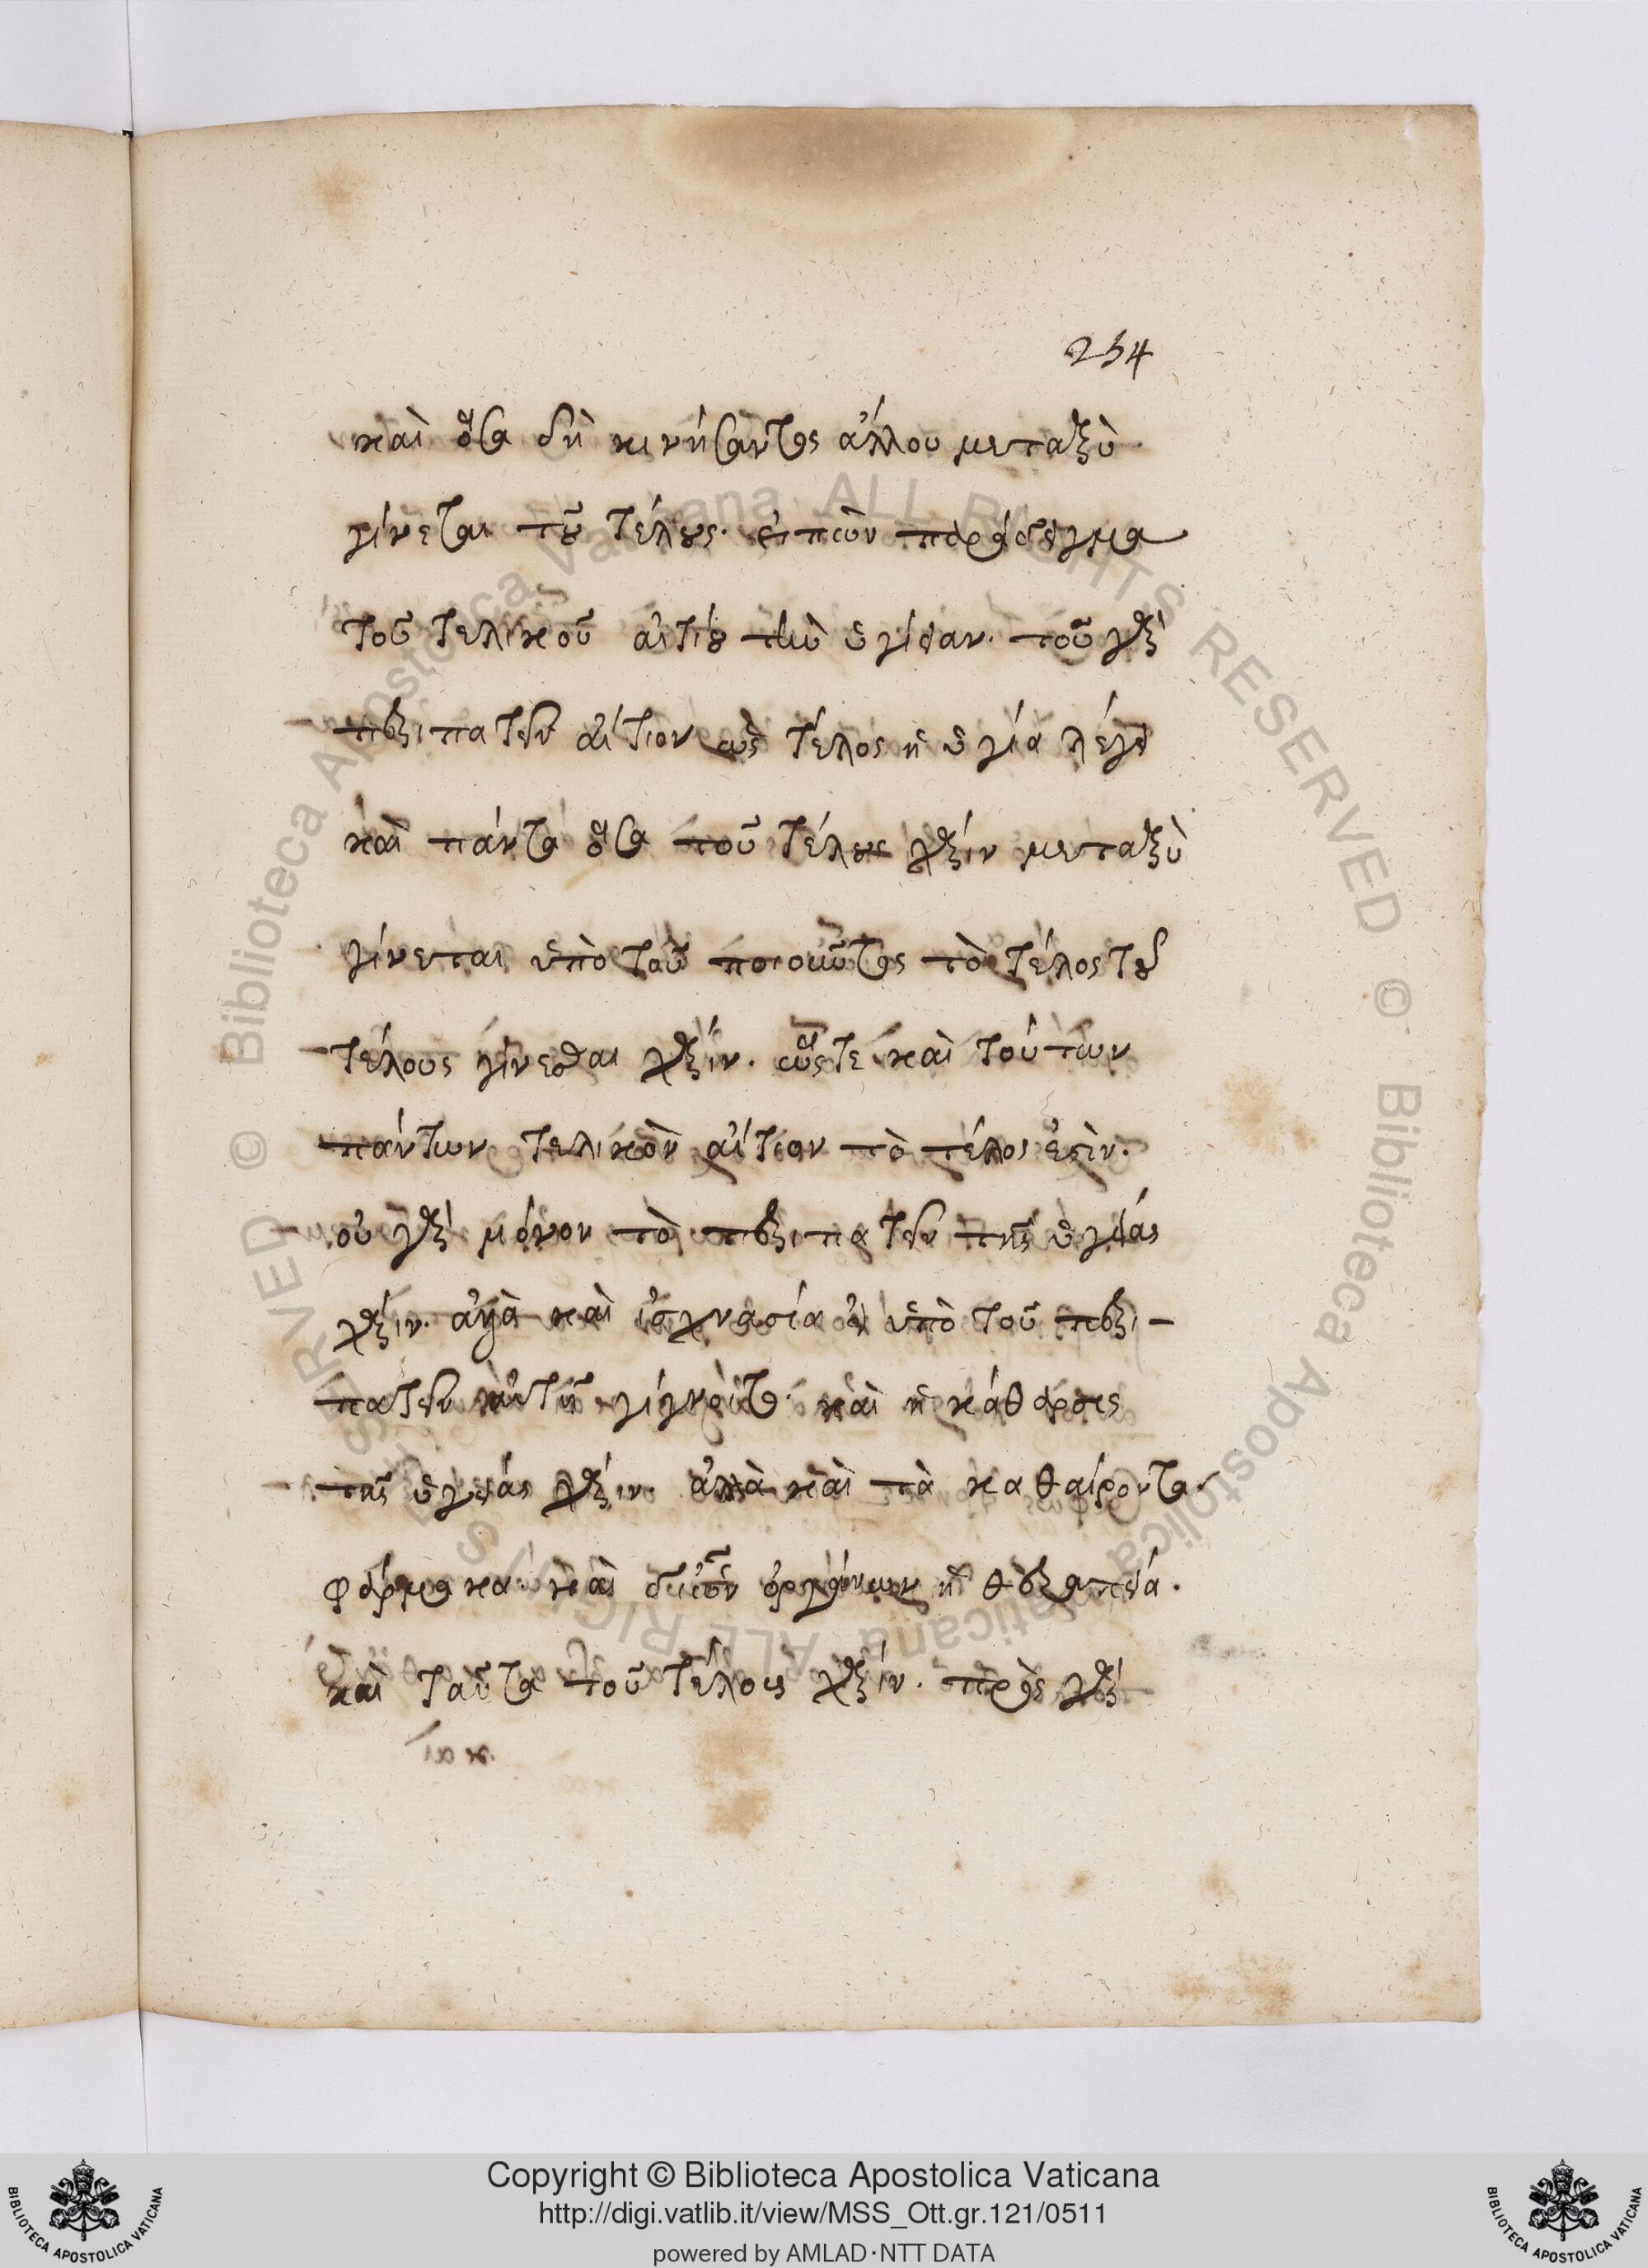 254
καὶ ὅσα δὴ κινήσαντος ἄλλου μεταξὺ
γίνεται τοῦ τέλους. εἰπὼν παράδειγμα
τοῦ τελικοῦ αἰτίου τὴν ὑγίειαν. τοῦ γὰρ
περιπατεῖν αἴτιον ὡς τέλος ἡ ὑγίεια λέγει
καὶ πάντα ὅσα τοῦ τέλους χάριν μεταξὺ
γίνεται ὑπὸ τοῦ ποιοῦντος τὸ τέλος τοῦ
τέλους γίνεσθαι χάριν. ὥστε καὶ τούτων
πάντων τελικὸν αἴτιον τὸ τέλος ἐστίν.
οὐ γὰρ μόνον τὸ περιπατεῖν τῆς ὑγιείας
χάριν. ἀλλὰ καὶ ἰσχνασία ὑπὸ τοῦ περι-
πατεῖν γίγνοιτο. καὶ ἡ κάθαρσις
τῆς ὑγιείας χάριν. ἀλλὰ καὶ τὰ καθαίροντα
φάρμακα. καὶ ὀργάνων ἡ θεραπεία.
καὶ ταῦτα τοῦ τέλους χάριν. πρὸς γὰρ
Copyright © Biblioteca Apostolica Vaticana
http://digi.vatlib.it/view/MSS_Ott.gr.121/0511
powered by AMLAD·NTT DATA
BIBLIOTECA APOSTOLICA VATICANA
BIBLIOTECA APOSTOLICA VATICANA
© Biblioteca Apostolica Vaticana ALL RIGHTS RESERVED © Biblioteca Apostolica Vaticana ALL RIGHTS RESERVED